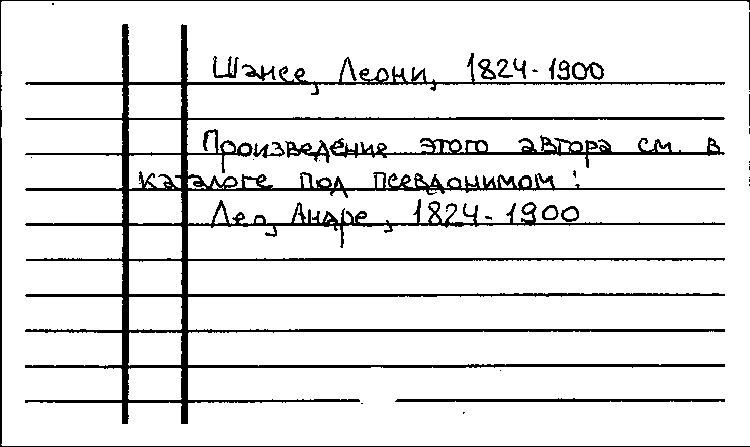 Шансе, Леони, 1824-1900
Произведение этого автора см. в
каталоге под псевдонимом:
Лео, Андре, 1824-1900